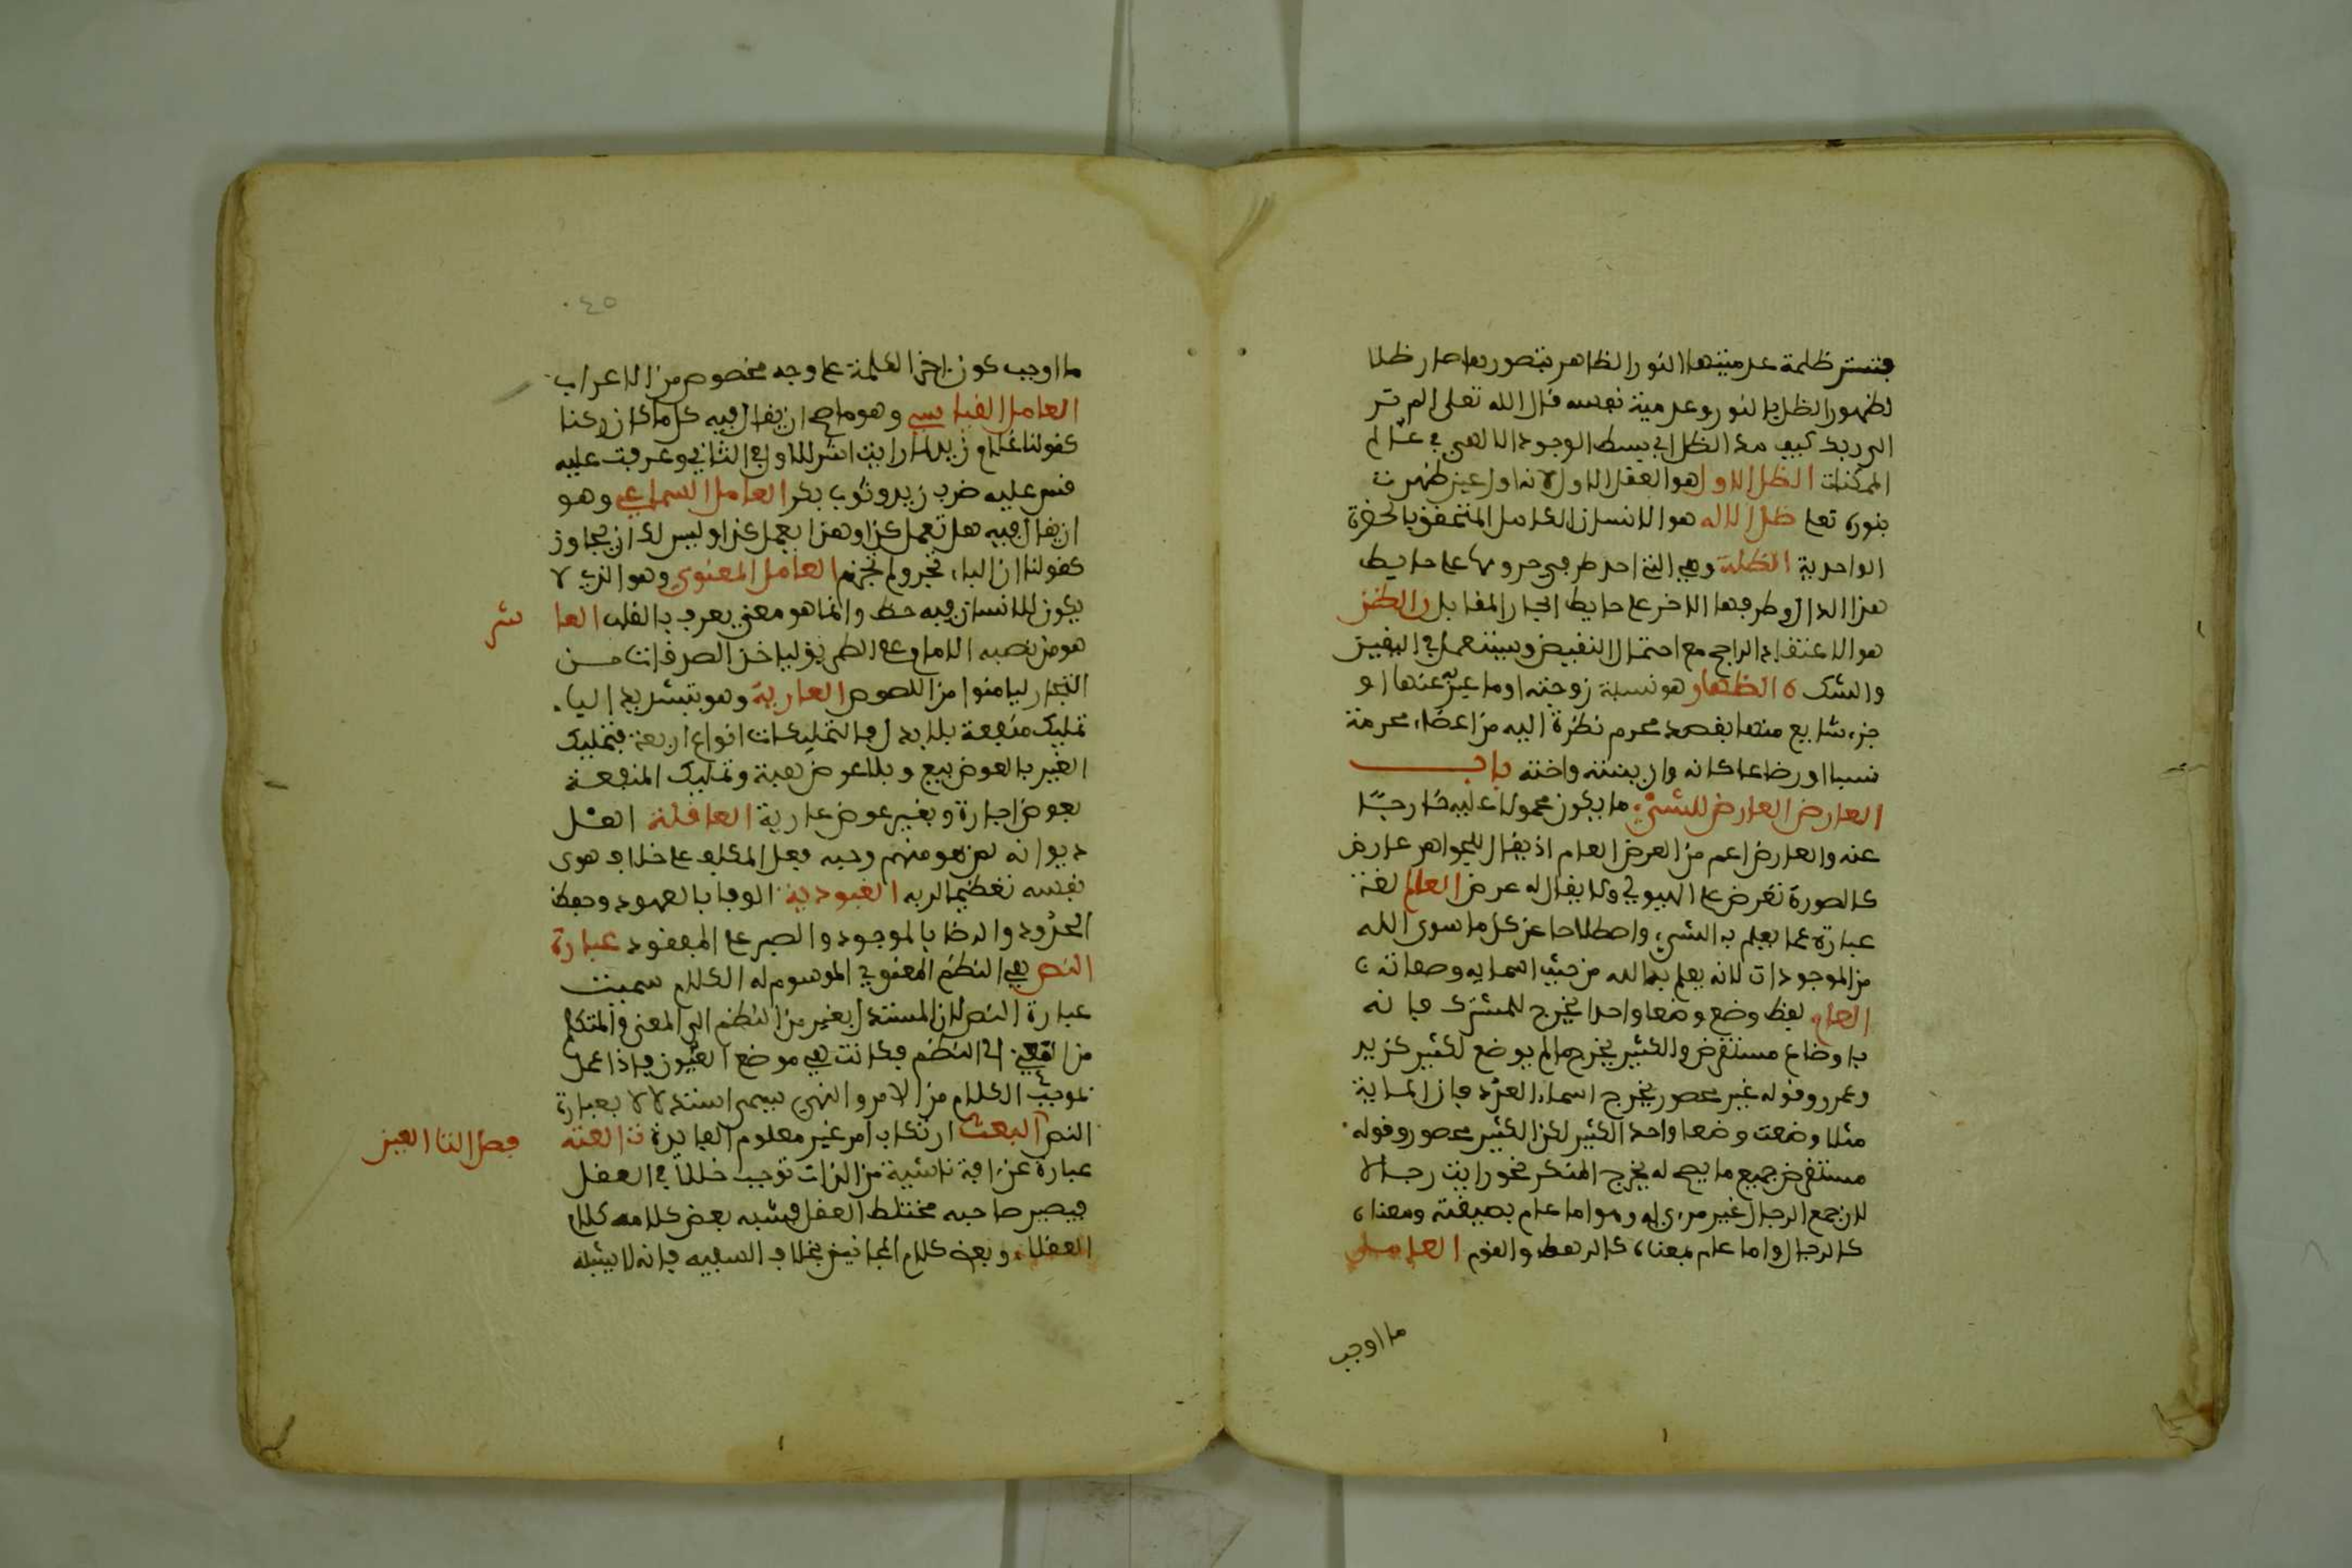 فتستر ظلمة عدميتها النور الظاهر بتصورها صار ظلا
لظهور الظل بالنور وعدمية نفسه قال الله تعلى الم تر
الى ربك كيف مد الظل اي بسط الوجود الالاهي في عالم
الممكنات الظل الاول هو العقل الاول لانه اول عين ظهرت
بنوره تعا ظل الاله هو الانسان الكامل المتحقق بالحضرة
الواحدية الظلة وهي التي احد طرفي جروعها على حايط
هذا الدار وطرفها الاخر على حايط الجار المقابل الظن
هو الاعتقاد الراجح مع احتمال النقيض ويستعمل في اليقين
والشك ه الظهار هو نسبة زوجته او ما عبر به عنها او
جزء شايع منها بعضو محرم نظره اليه من اعضاء محرمة
نسبا او رضاعا كامه وابنته واخته باب
العارض العارض للشيء ما يكون محمولا عليه خارجا
عنه والعارض اعم من العرض العام اذ يقال للجواهر عارض
كالصورة تعرض على الهيولي ولا يقال له عرض العالم لغة
عبارة عما يعلم به الشيء واصطلاحا عن كل ما سوى الله
من الموجودات لانه يعلم به الله من حيث اسمايه وصفاته
العام لفظ وضع وضعا واحدا يخرج للمشترك فانه
باوضاع مستغرق والكثير يخرج ما لم يوضع لكثير كزيد
وعمرو وقوله غير محصور يخرج اسماء العدد فان الماية
مثلا وضعت وضعا واحدا لكثير لكن الكثير محصور وقوله
مستغرق جميع ما يصح له يخرج المنكر نحو رايت رجالا
لان جمع الرجال غير مرءى له وهو اما عام بصيغته ومعناه
كالرجال واما عام بمعناه كالرهط والقوم العامل
ما اوجب
٠٤٥
ما اوجب كون اخر الكلمة على وجه مخصوص من الاعراب
العامل القياسي وهو ما صح ان يقال فيه كل ما كان كذا
كقولنا غلام زيد لما رايت اثر الاول في الثاني وعرفت عليه
قس عليه ضرب زيد وثوب بكر العامل السماعي وهو
ان يقال فيه هل تعمل كذا وهذا يعمل كذا وليس لك ان تجاوز
كقولنا ان الباء تجر ولم تجزم العامل المعنوي وهو الذي لا
يكون للانسان فيه حظ وانما هو معنى يعرف بالقلب العا شر
هو من نصبه الامام على الطريق لياخذ الصدقات من
التجار ليامنوا من اللصوص العارية وهو بتشديد الياء
تمليك منفعة بلا بدل فالتمليكات انواع اربعة فتمليك
العين بالعوض بيع وبلا عوض هبة وتمليك المنفعة
بعوض اجارة وبغير عوض عارية العاقلة اهل
ديوانه لمن هو منهم وحيه فعل المكلف على خلاف هوى
نفسه تعظيما لربه العبودية الوفا بالعهود وحفظ
الحدود والرضا بالموجود والصبر على المفقود عبارة
النص هي النظم المعنوي الموسوم له الكلام سميت
عبارة النص لان المستدل يعبر من النظم الى المعنى والمتكلم
من المعنى الى النظم فكانت هي موضع العبور فاذا عمل
بموجب الكلام من الامر والنهي يسمى استدلالا بعبارة
النص البعث ارتكاب امر غير معلوم الفايدة ن العته فصل التا العين
عبارة عن افة ناشية من الذات توجب خللا في العقل
فيصير صاحبه مختلط العقل فيشبه بعض كلامه كلام
العقلاء وبعضه كلام المجانين بخلاف السفيه فانه لا يشبه